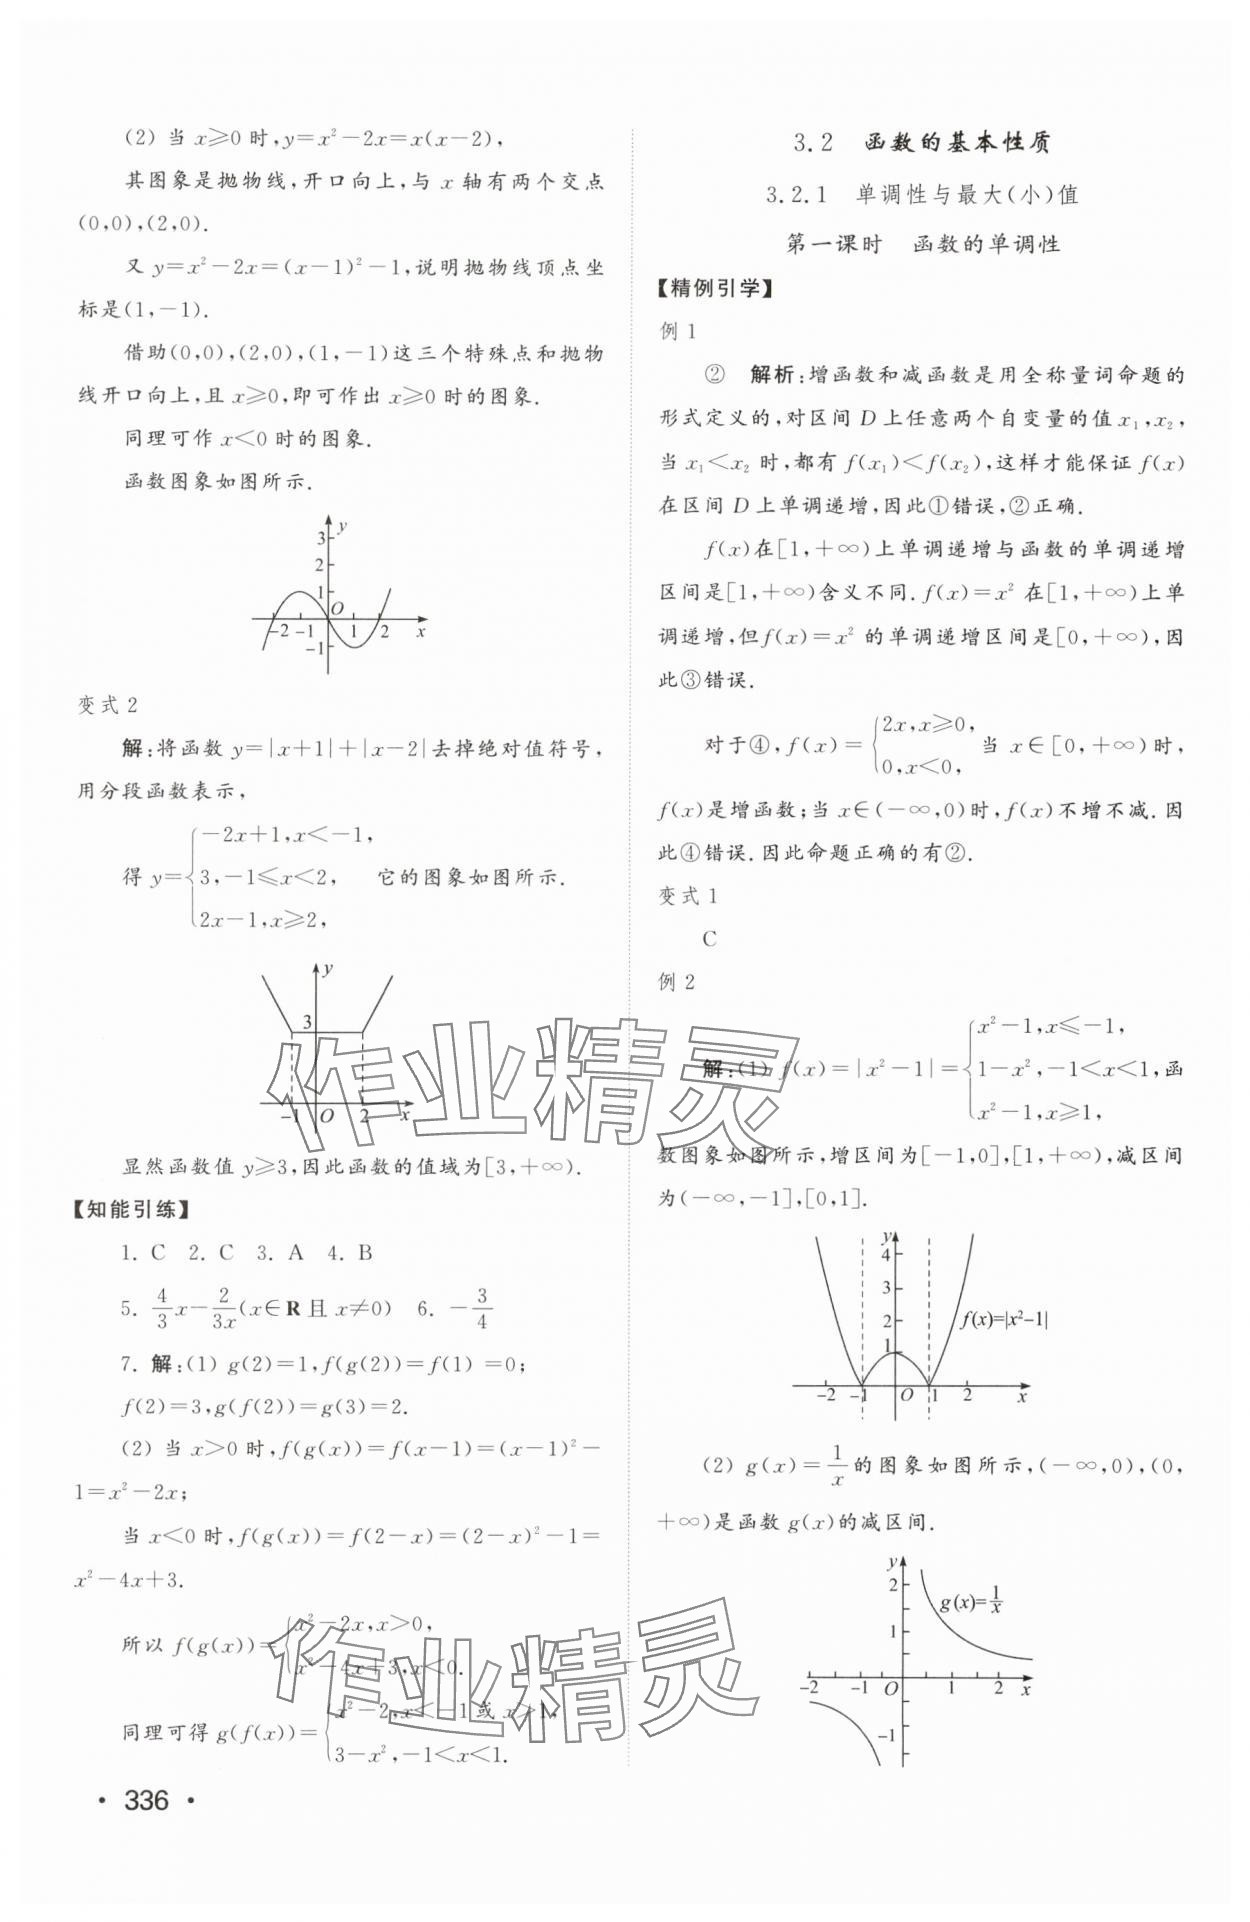 (2) 当 x≥0 时,y=x²-2x=x(x-2),
其图象是抛物线,开口向上,与 x 轴有两个交点
(0,0),(2,0).
又 y=x²-2x=(x-1)²-1,说明抛物线顶点坐
标是(1,-1).
借助(0,0),(2,0),(1,-1)这三个特殊点和抛物
线开口向上,且 x≥0,即可作出 x≥0 时的图象.
同理可作 x<0 时的图象.
函数图象如图所示.
y
3
2
1
O
-2 -1 1 2 x
-1
变式 2
解:将函数 y=|x+1|+|x-2|去掉绝对值符号,
用分段函数表示,
-2x+1,x<-1,
得 y= 3,-1≤x<2, 它的图象如图所示.
2x-1,x≥2,
y
3
-1 O 2 x
显然函数值 y≥3,因此函数的值域为[3,+∞).
【知能引练】
1. C 2. C 3. A 4. B
5. 4/3 x-2/3x(x∈R 且 x≠0) 6. -3/4
7. 解:(1) g(2)=1,f(g(2))=f(1)=0;
f(2)=3,g(f(2))=g(3)=2.
(2) 当 x>0 时,f(g(x))=f(x-1)=(x-1)²-
1=x²-2x;
当 x<0 时,f(g(x))=f(2-x)=(2-x)²-1=
x²-4x+3.
x²-2x,x>0,
所以 f(g(x))=
x²-4x+3,x<0.
x²-2,x<-1 或 x>1,
同理可得 g(f(x))=
3-x²,-1<x<1.
• 336 •
3.2 函数的基本性质
3.2.1 单调性与最大(小)值
第一课时 函数的单调性
【精例引学】
例 1
② 解析:增函数和减函数是用全称量词命题的
形式定义的,对区间 D 上任意两个自变量的值 x₁,x₂,
当 x₁<x₂ 时,都有 f(x₁)<f(x₂),这样才能保证 f(x)
在区间 D 上单调递增,因此①错误,②正确.
f(x)在[1,+∞)上单调递增与函数的单调递增
区间是[1,+∞)含义不同.f(x)=x² 在[1,+∞)上单
调递增,但f(x)=x² 的单调递增区间是[0,+∞),因
此③错误.
2x,x≥0,
对于④,f(x)= 当 x∈[0,+∞)时,
0,x<0,
f(x)是增函数;当 x∈(-∞,0)时,f(x)不增不减.因
此④错误.因此命题正确的有②.
变式 1
C
例 2
x²-1,x≤-1,
解:(1) f(x)=|x²-1|= 1-x²,-1<x<1,函
x²-1,x≥1,
数图象如图所示,增区间为[-1,0],[1,+∞),减区间
为(-∞,-1],[0,1].
y
4
3
2
f(x)=|x²-1|
1
-2 -1 O 1 2 x
(2) g(x)=1/x 的图象如图所示,(-∞,0),(0,
+∞)是函数 g(x)的减区间.
y
2
g(x)=1/x
1
-2 -1 O 1 2 x
-1
作业精灵
作业精灵